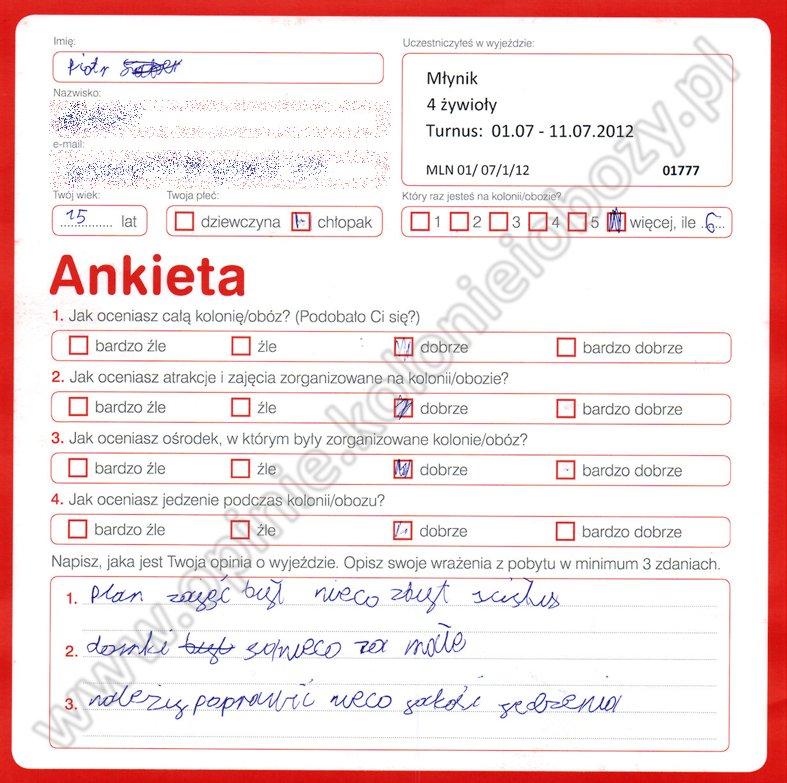 Imię:
Piotr
Uczestniczyłeś w wyjeździe:
Młynik
4 żywioły
Turnus: 01.07 - 11.07.2012
MLN 01/ 07/1/12 01777
Nazwisko:
e-mail:
Twój wiek:
15 lat
Twoja płeć:
dziewczyna chłopak
Który raz jesteś na kolonii/obozie?
1 2 3 4 5 więcej, ile 6
Ankieta
1. Jak oceniasz całą kolonię/obóz? (Podobało Ci się?)
bardzo źle źle dobrze bardzo dobrze
2. Jak oceniasz atrakcje i zajęcia zorganizowane na kolonii/obozie?
bardzo źle źle dobrze bardzo dobrze
3. Jak oceniasz ośrodek, w którym były zorganizowane kolonie/obóz?
bardzo źle źle dobrze bardzo dobrze
4. Jak oceniasz jedzenie podczas kolonii/obozu?
bardzo źle źle dobrze bardzo dobrze
Napisz, jaka jest Twoja opinia o wyjeździe. Opisz swoje wrażenia z pobytu w minimum 3 zdaniach.
1. Plan zajęć był nieco zbyt
2. domki są nieco za małe
3. należy poprawić nieco jakość jedzenia
www.opinie.kolonieiobozy.pl